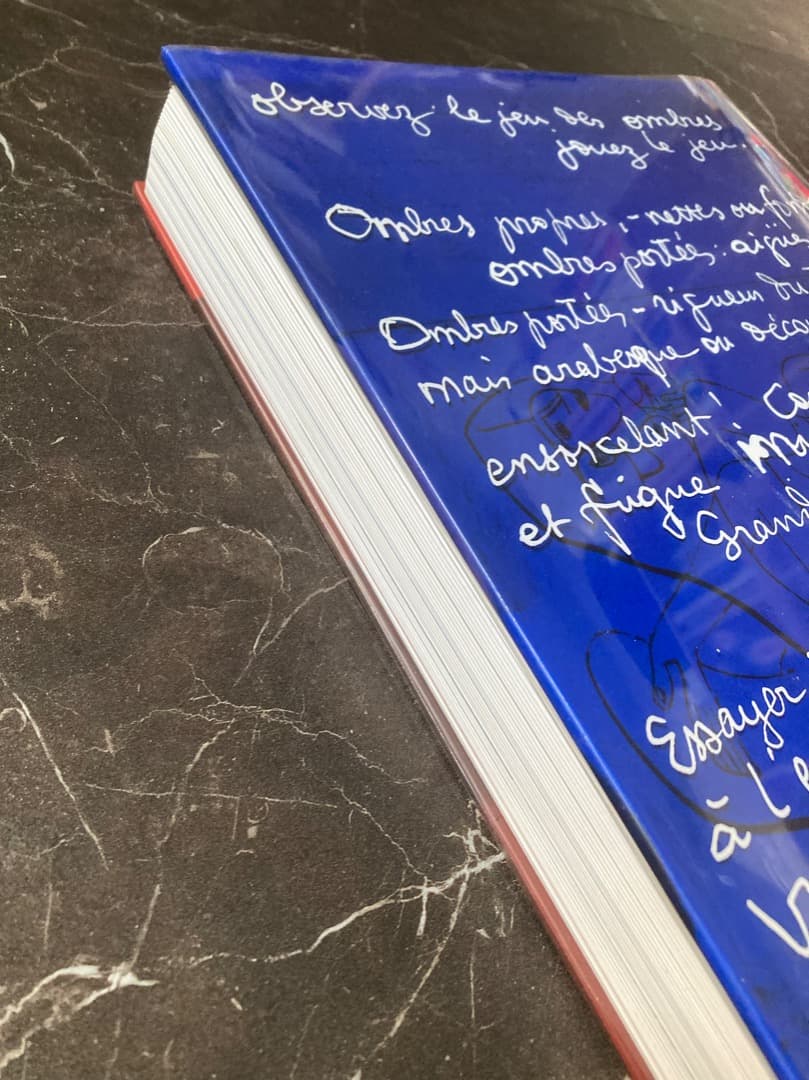 observez le jeu des ombres
jouez le jeu.
Ombres propres, - nettes ou
ombres portées. aigües
Ombres portées, - rigueur du
mais arabesque ou
ensorcelant!
et fugue
Essayer
à